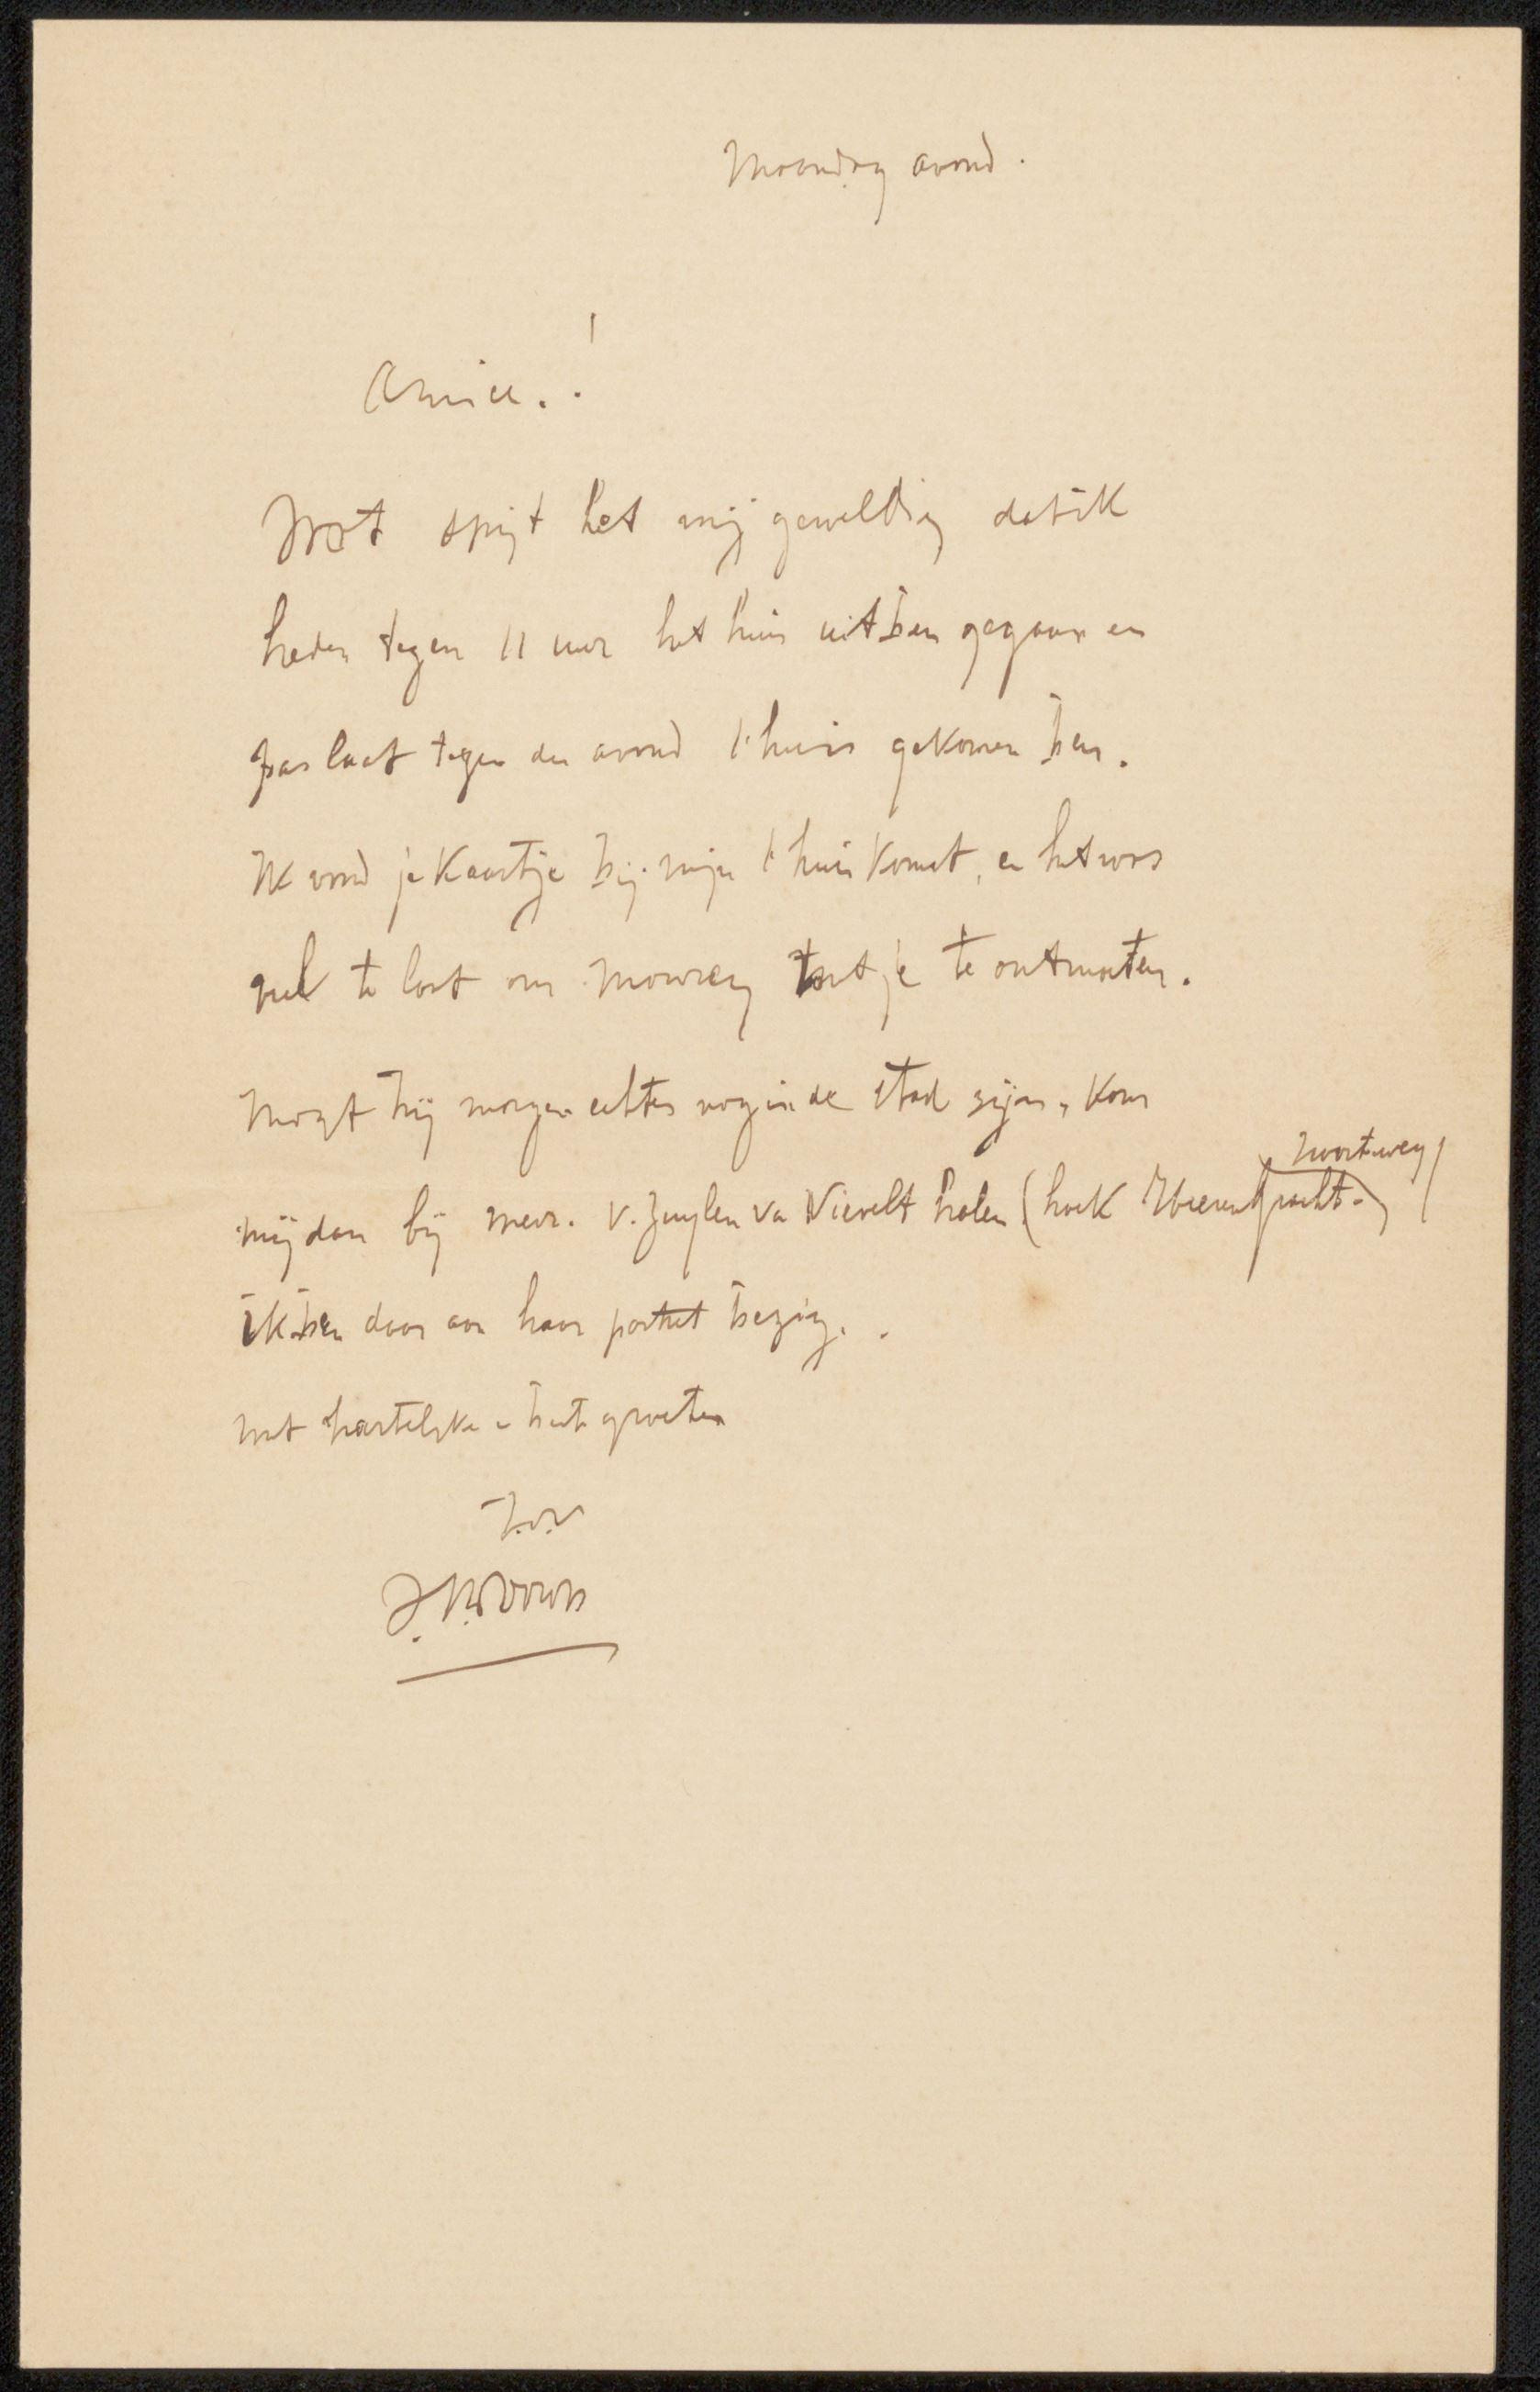 Maandag avond.
Amice.!
Wat spijt het mij geweldig dat ik
heden tegen 11 uur het huis uit ben gegaan en
pas laat tegen den avond t'huis gekomen ben.
Ik vond je kaartje bij mijn t'huiskomst, en het was
veel te laat om met je te ontmoeten.
Mogt hij morgen echter nog in de stad zijn, kom
mij dan bij mevr. v. Zuylen va Nievelt halen (hoek gracht.)
ik ben daar aan haar portret bezig.
met hartelijke groeten
t.v.